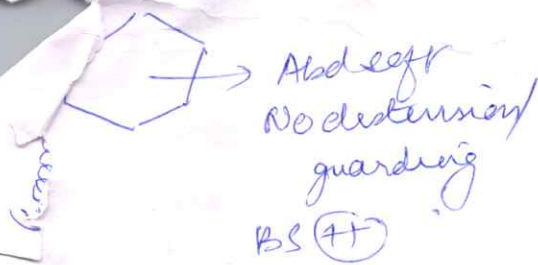 Abd soft
No distension/
guarding
BS (++)